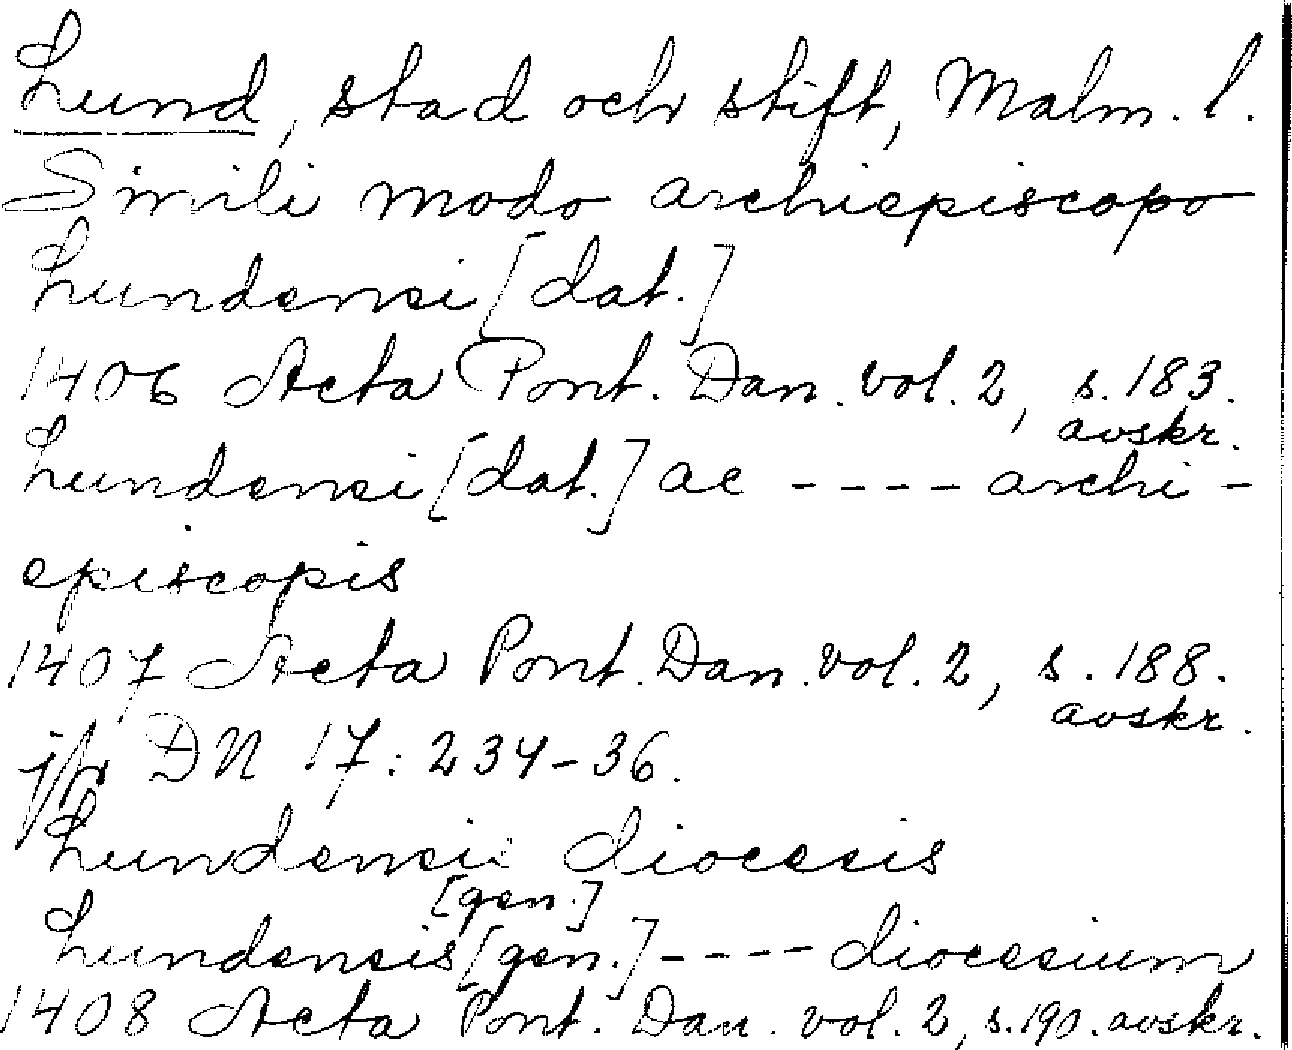 Lund, stad och stift, Malm. l.
Simili modo archiepiscopo
Lundensi [dat.]
1406 Acta Pont. Dan. vol. 2, s. 183.
avskr.
Lundensi [dat.] ac ---- archi-
episcopis
1407 Acta Pont. Dan. vol. 2, s. 188.
avskr.
jfr DN 17: 234-36.
Lundensis diocesis
[gen.]
Lundensis [gen.] ---- diocesium
1408 Acta Pont. Dan. vol. 2, s. 190. avskr.